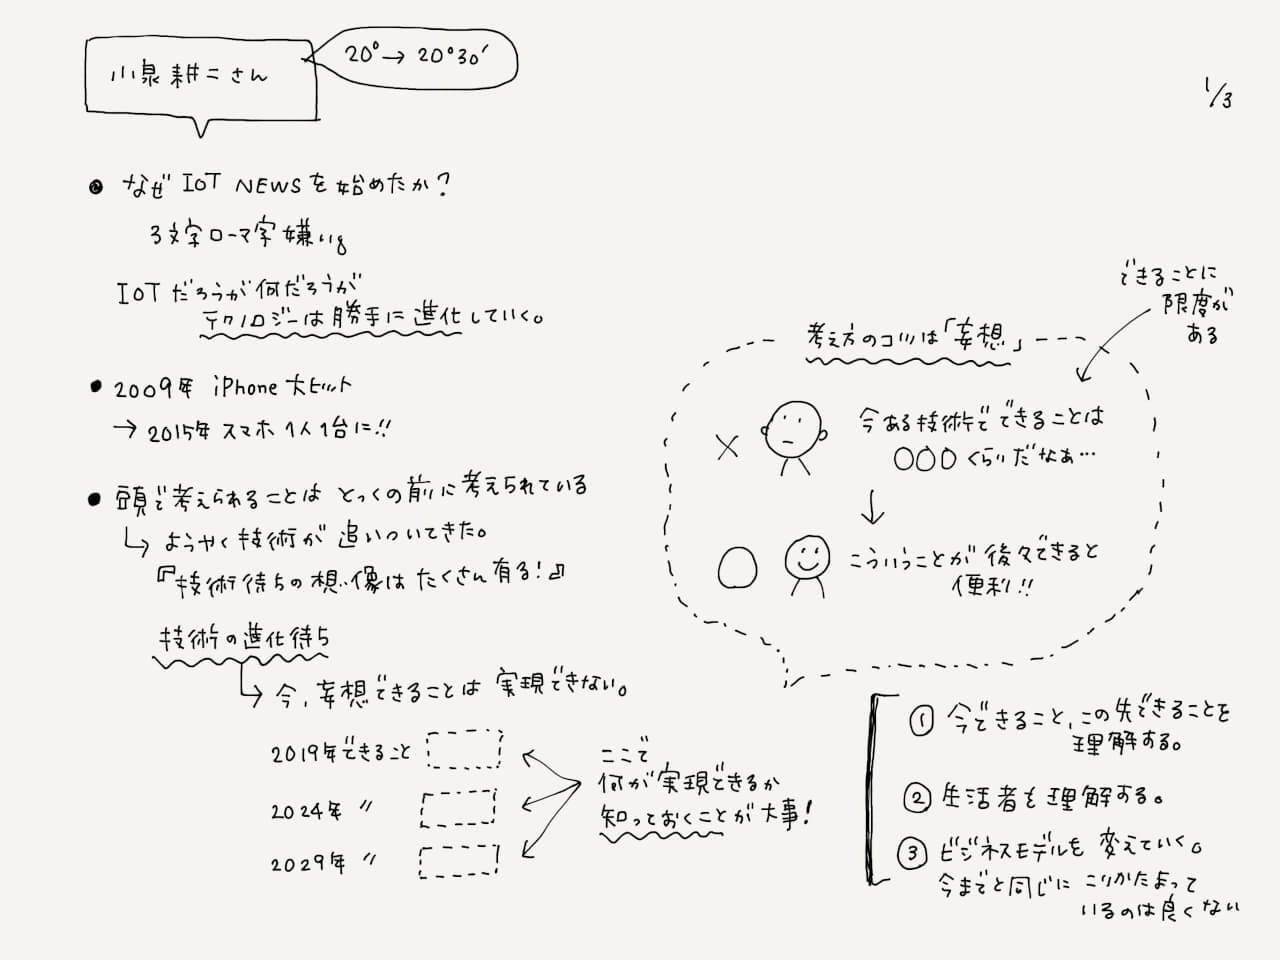 小泉耕二さん
20°→20°30′
1/3
● なぜ IOT NEWSを始めたか?
3文字ローマ字嫌い
IOTだろうが何だろうが
テクノロジーは勝手に進化していく。
● 2009年 iPhone大ヒット
→ 2015年スマホ1人1台に!!
● 頭で考えられることは とっくの前に考えられている
ようやく技術が 追いついてきた。
『技術待ちの想像はたくさん有る!』
技術の進化待ち
今、妄想できることは 実現できない。
2019年できること
2024年 〃
2029年 〃
ここで
何が実現できるか
知っておくことが大事!
できることに
限度が
ある
考え方のコツは「妄想」
× 今ある技術でできることは
○○○くらいだなぁ…
○ こういうことが後々できると
便利!!
① 今できること、この先できることを
理解する。
② 生活者を理解する。
③ ビジネスモデルを 変えていく。
今までと同じに こりかたまって
いるのは良くない